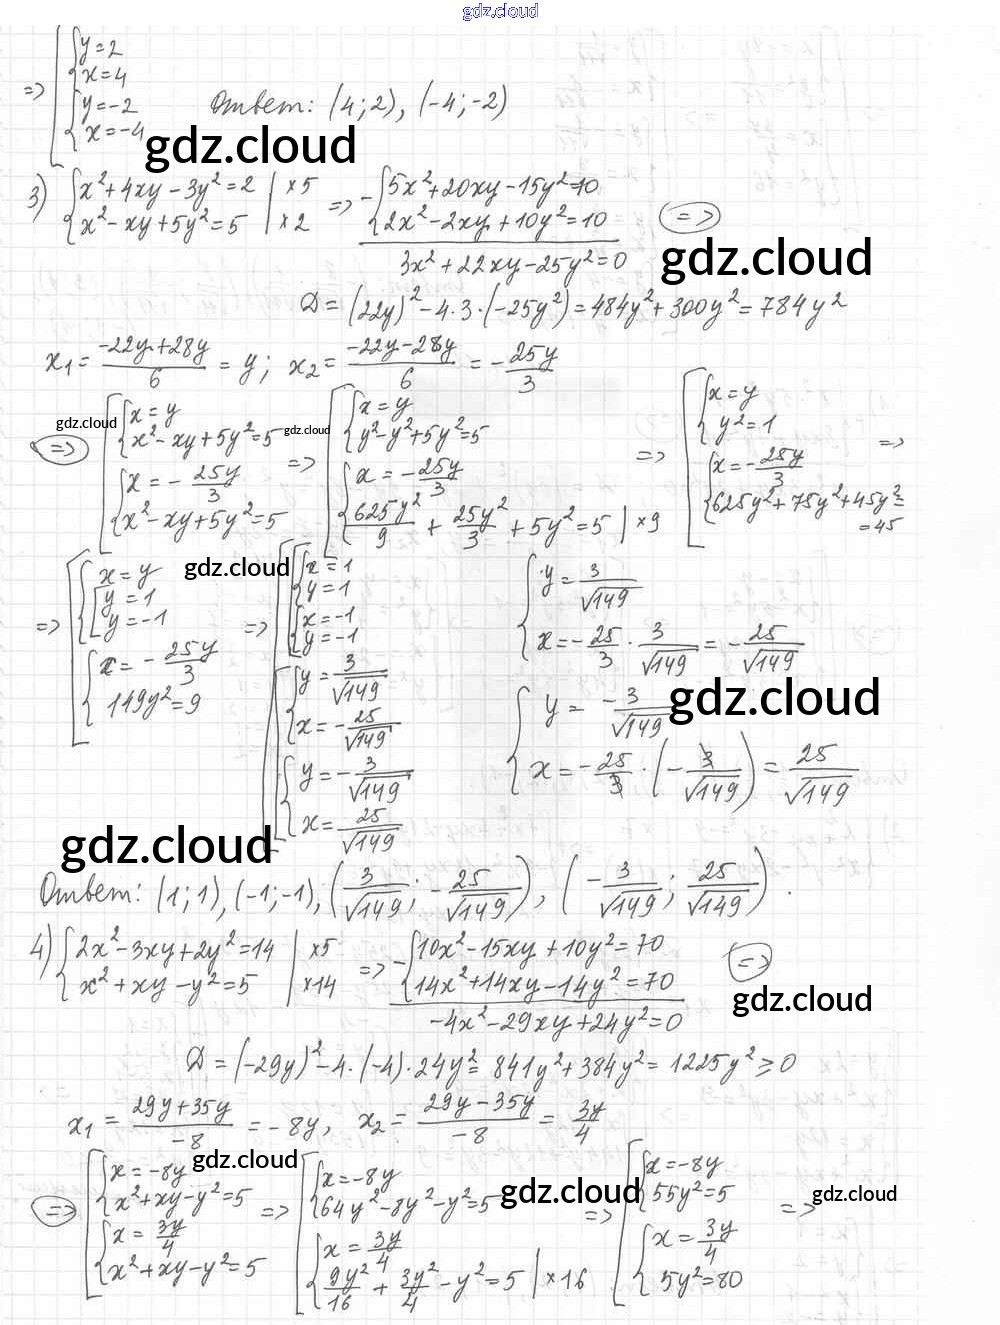 gdz.cloud
=> [ { y=2
x=4
{ y=-2
x=-4
Ответ: (4; 2), (-4; -2)
gdz.cloud
3) { x²+4xy-3y²=2 | ×5
x²-xy+5y²=5 | ×2
=> - { 5x²+20xy-15y²=10
2x²-2xy+10y²=10
(=>)
3x²+22xy-25y²=0
gdz.cloud
D=(22y)²-4·3·(-25y²)=484y²+300y²=784y²
x₁= (-22y+28y)/6 = y; x₂= (-22y-28y)/6 = -25y/3
gdz.cloud
(=>) [ { x=y
x²-xy+5y²=5
{ x=-25y/3
x²-xy+5y²=5
gdz.cloud
=> [ { x=y
y²-y²+5y²=5
{ x=-25y/3
625y²/9 + 25y²/3 + 5y²=5 | ×9
=> [ { x=y
y²=1
{ x=-25y/3
625y²+75y²+45y²=
=45
=>
=> [ { x=y
[ y=1
y=-1
{ x=-25y/3
149y²=9
gdz.cloud
=> [ { x=1
y=1
{ x=-1
y=-1
{ y=3/√149
x=-25/√149
{ y=-3/√149
x=25/√149
{ y=3/√149
x=-25/3 · 3/√149 = -25/√149
gdz.cloud
{ y=-3/√149
x=-25/3 · (-3/√149) = 25/√149
gdz.cloud
Ответ: (1; 1), (-1; -1), (3/√149; -25/√149), (-3/√149; 25/√149).
4) { 2x²-3xy+2y²=14 | ×5
x²+xy-y²=5 | ×14
=> - { 10x²-15xy+10y²=70
14x²+14xy-14y²=70
(=>)
gdz.cloud
-4x²-29xy+24y²=0
D=(-29y)²-4·(-4)·24y²=841y²+384y²=1225y²≥0
x₁= (29y+35y)/-8 = -8y, x₂= (29y-35y)/-8 = 3y/4
gdz.cloud
(=>) [ { x=-8y
x²+xy-y²=5
{ x=3y/4
x²+xy-y²=5
=> [ { x=-8y
64y²-8y²-y²=5
{ x=3y/4
9y²/16 + 3y²/4 - y²=5 | ×16
gdz.cloud
=> [ { x=-8y
55y²=5
{ x=3y/4
5y²=80
=>
gdz.cloud